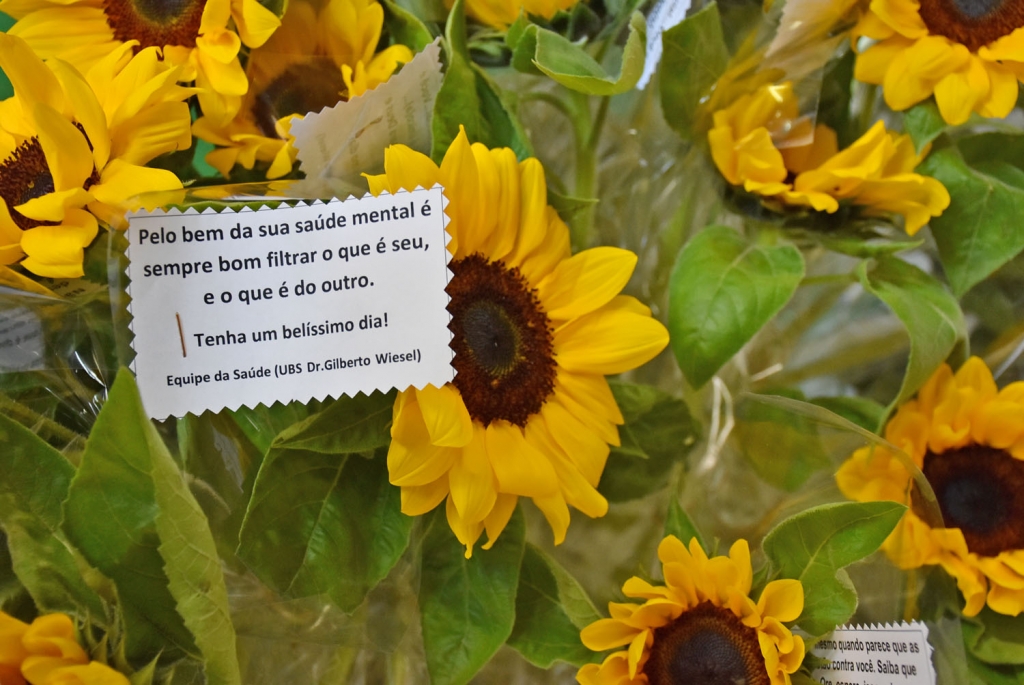 Pelo bem da sua saúde mental é
sempre bom filtrar o que é seu,
e o que é do outro.
Tenha um belíssimo dia!
Equipe da Saúde (UBS Dr.Gilberto Wiesel)
quando parece que as
contra você. Saiba que